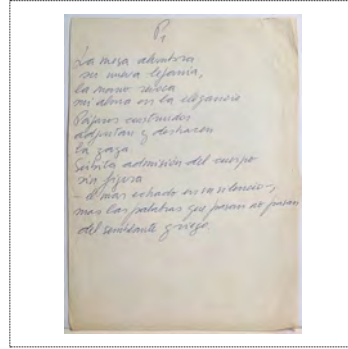 P,
La mesa
su nueva lejanía,
la mano
mi alma en la elegancia
Pájaros construidos
adjuntan y deshacen
la gaza.
Súbita admisión del cuerpo
sin figura
- el mar echado en su silencio-,
mas las palabras que pasan no pasan
del semblante griego.